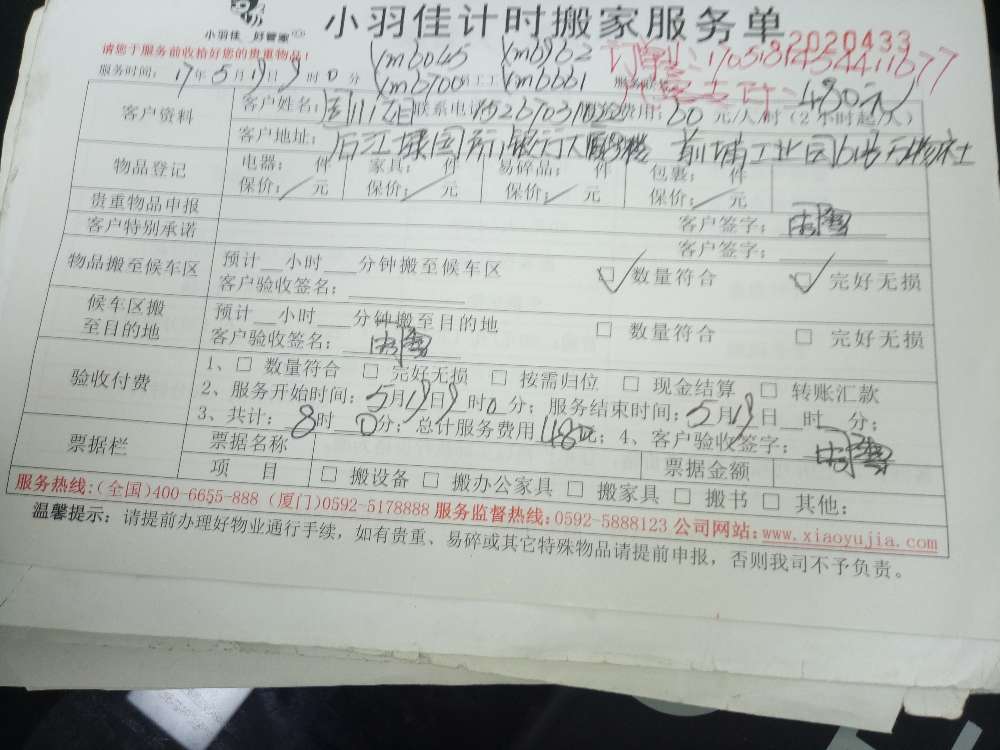 小羽佳计时搬家服务单
小羽佳 好管家
2020433
请您于服务前收拾好您的贵重物品!
xm6045 xm6962
服务时间: 17年5月19日9时0分 xm6700 员工工 xm6661
480元
客户资料 客户姓名: 联系电话 费用: 60 元/人/时(2小时起/人)
客户地址:
物品登记 电器: 件 家具: 件 易碎品: 件 包裹: 件
保价: / 元 保价: / 元 保价: / 元 保价: / 元
贵重物品申报 客户签字:
客户特别承诺 客户签字:
物品搬至候车区 预计__小时___分钟搬至候车区 ☑ 数量符合 ☑ 完好无损
客户验收签名:
候车区搬至目的地 预计__小时___分钟搬至目的地 □ 数量符合 □ 完好无损
客户验收签名:
验收付费 1、□ 数量符合 □ 完好无损 □ 按需归位 □ 现金结算 □ 转账汇款
2、服务开始时间: 5月19日9时0分; 服务结束时间: 5月19日__时__分;
3、共计: 8时0分; 总计服务费用480元; 4、客户验收签字:
票据栏 票据名称 票据金额
项 目 □ 搬设备 □ 搬办公家具 □ 搬家具 □ 搬书 □ 其他:
服务热线:(全国)400-6655-888 (厦门)0592-5178888 服务监督热线:0592-5888123 公司网站:www.xiaoyujia.com
温馨提示: 请提前办理好物业通行手续, 如有贵重、易碎或其它特殊物品请提前申报, 否则我司不予负责。